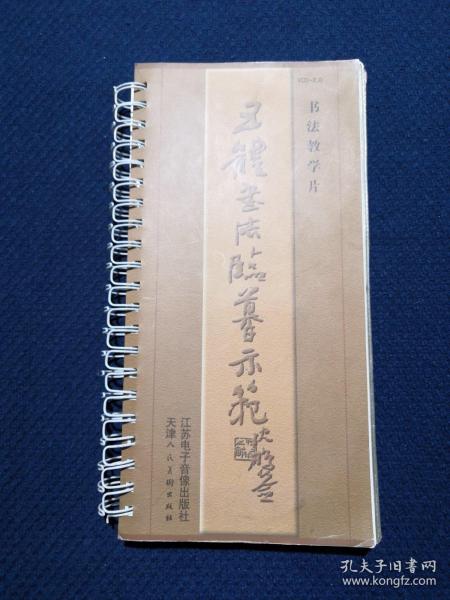 VCD-2.0
书法教学片
王體書法臨摹示範
江苏电子音像出版社
天津人民美術出版社
孔夫子旧书网
www.kongfz.com